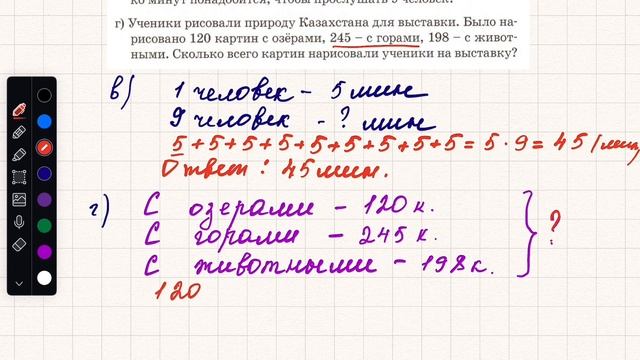 ко минут понадобится, чтобы прослушать 9 человек?
г) Ученики рисовали природу Казахстана для выставки. Было на-
рисовано 120 картин с озёрами, 245 – с горами, 198 – с живот-
ными. Сколько всего картин нарисовали ученики на выставку?
в) 1 человек – 5 мин
9 человек - ? мин
5+5+5+5+5+5+5+5+5 = 5 · 9 = 45 (мин)
Ответ : 45 мин.
г) С озерами – 120 к.
С горами – 245 к. ?
С животными – 198 к.
120